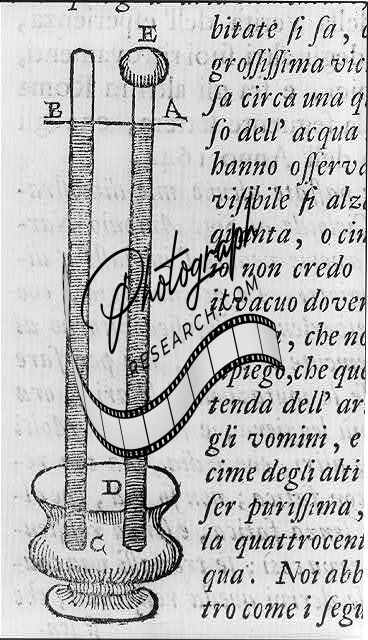 E
B A
D
C
bitate ſi fa,
groſſiſſima
ſa circa una
ſo dell' acqua
hanno oſſerva
viſibile ſi alz
, o
io non credo
il vacuo dover
, che no
piego, che que
tenda dell' ar
gli vomini, e
cime degli alti
ſer puriſſima,
la quattrocent
qua. Noi abb
tro come i ſegu
Photograph
RESEARCH.COM